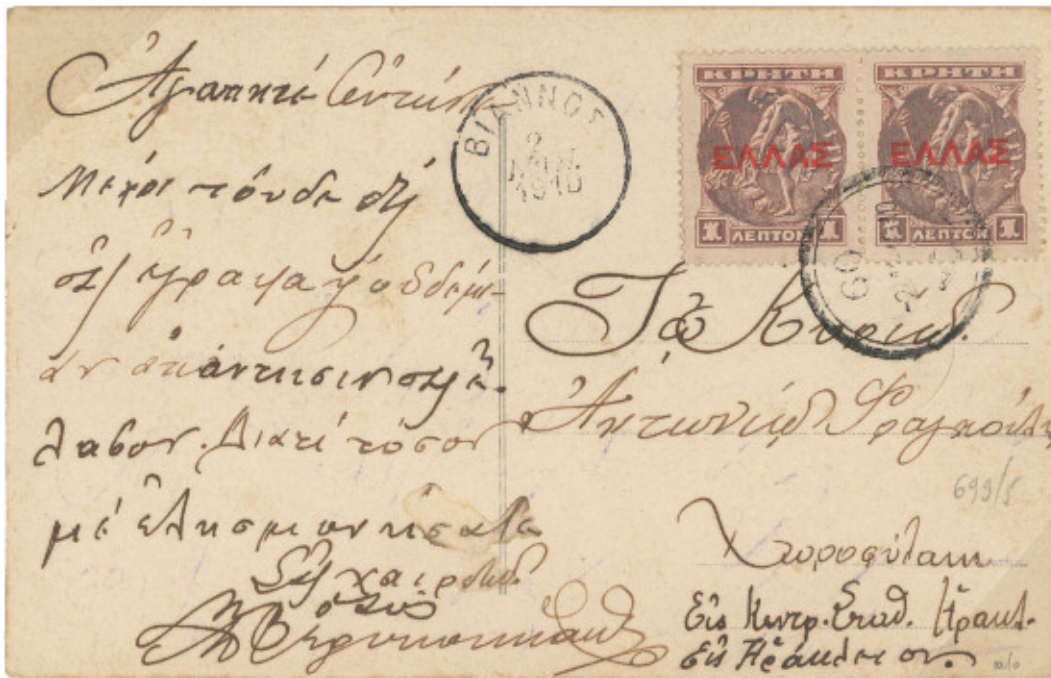 Ἀγαπητέ Ἀντώνιε
Μέχρι τοῦδε σᾶς
ἔγραψα οὐδεμί-
αν ἀπάντησιν ἔ-
λαβον. Διατί τόσον
μέ ἐλησμονήσατε
Σᾶς χαιρετῶ
ὁ σός
ΒΙΑΝΝΟΣ
2
1910
ΚΡΗΤΗ ΚΡΗΤΗ
ΕΛΛΑΣ ΕΛΛΑΣ
1 ΛΕΠΤΟΝ 1 1 ΛΕΠΤΟΝ 1
60
2
Τῷ Κυρίῳ
Ἀντωνίῳ Φραγκούλη
699/5
Χωροφύλακι
Εἰς Κεντρ. Σταθ. Ἡρακλ.
Εἰς Ἡράκλειον.